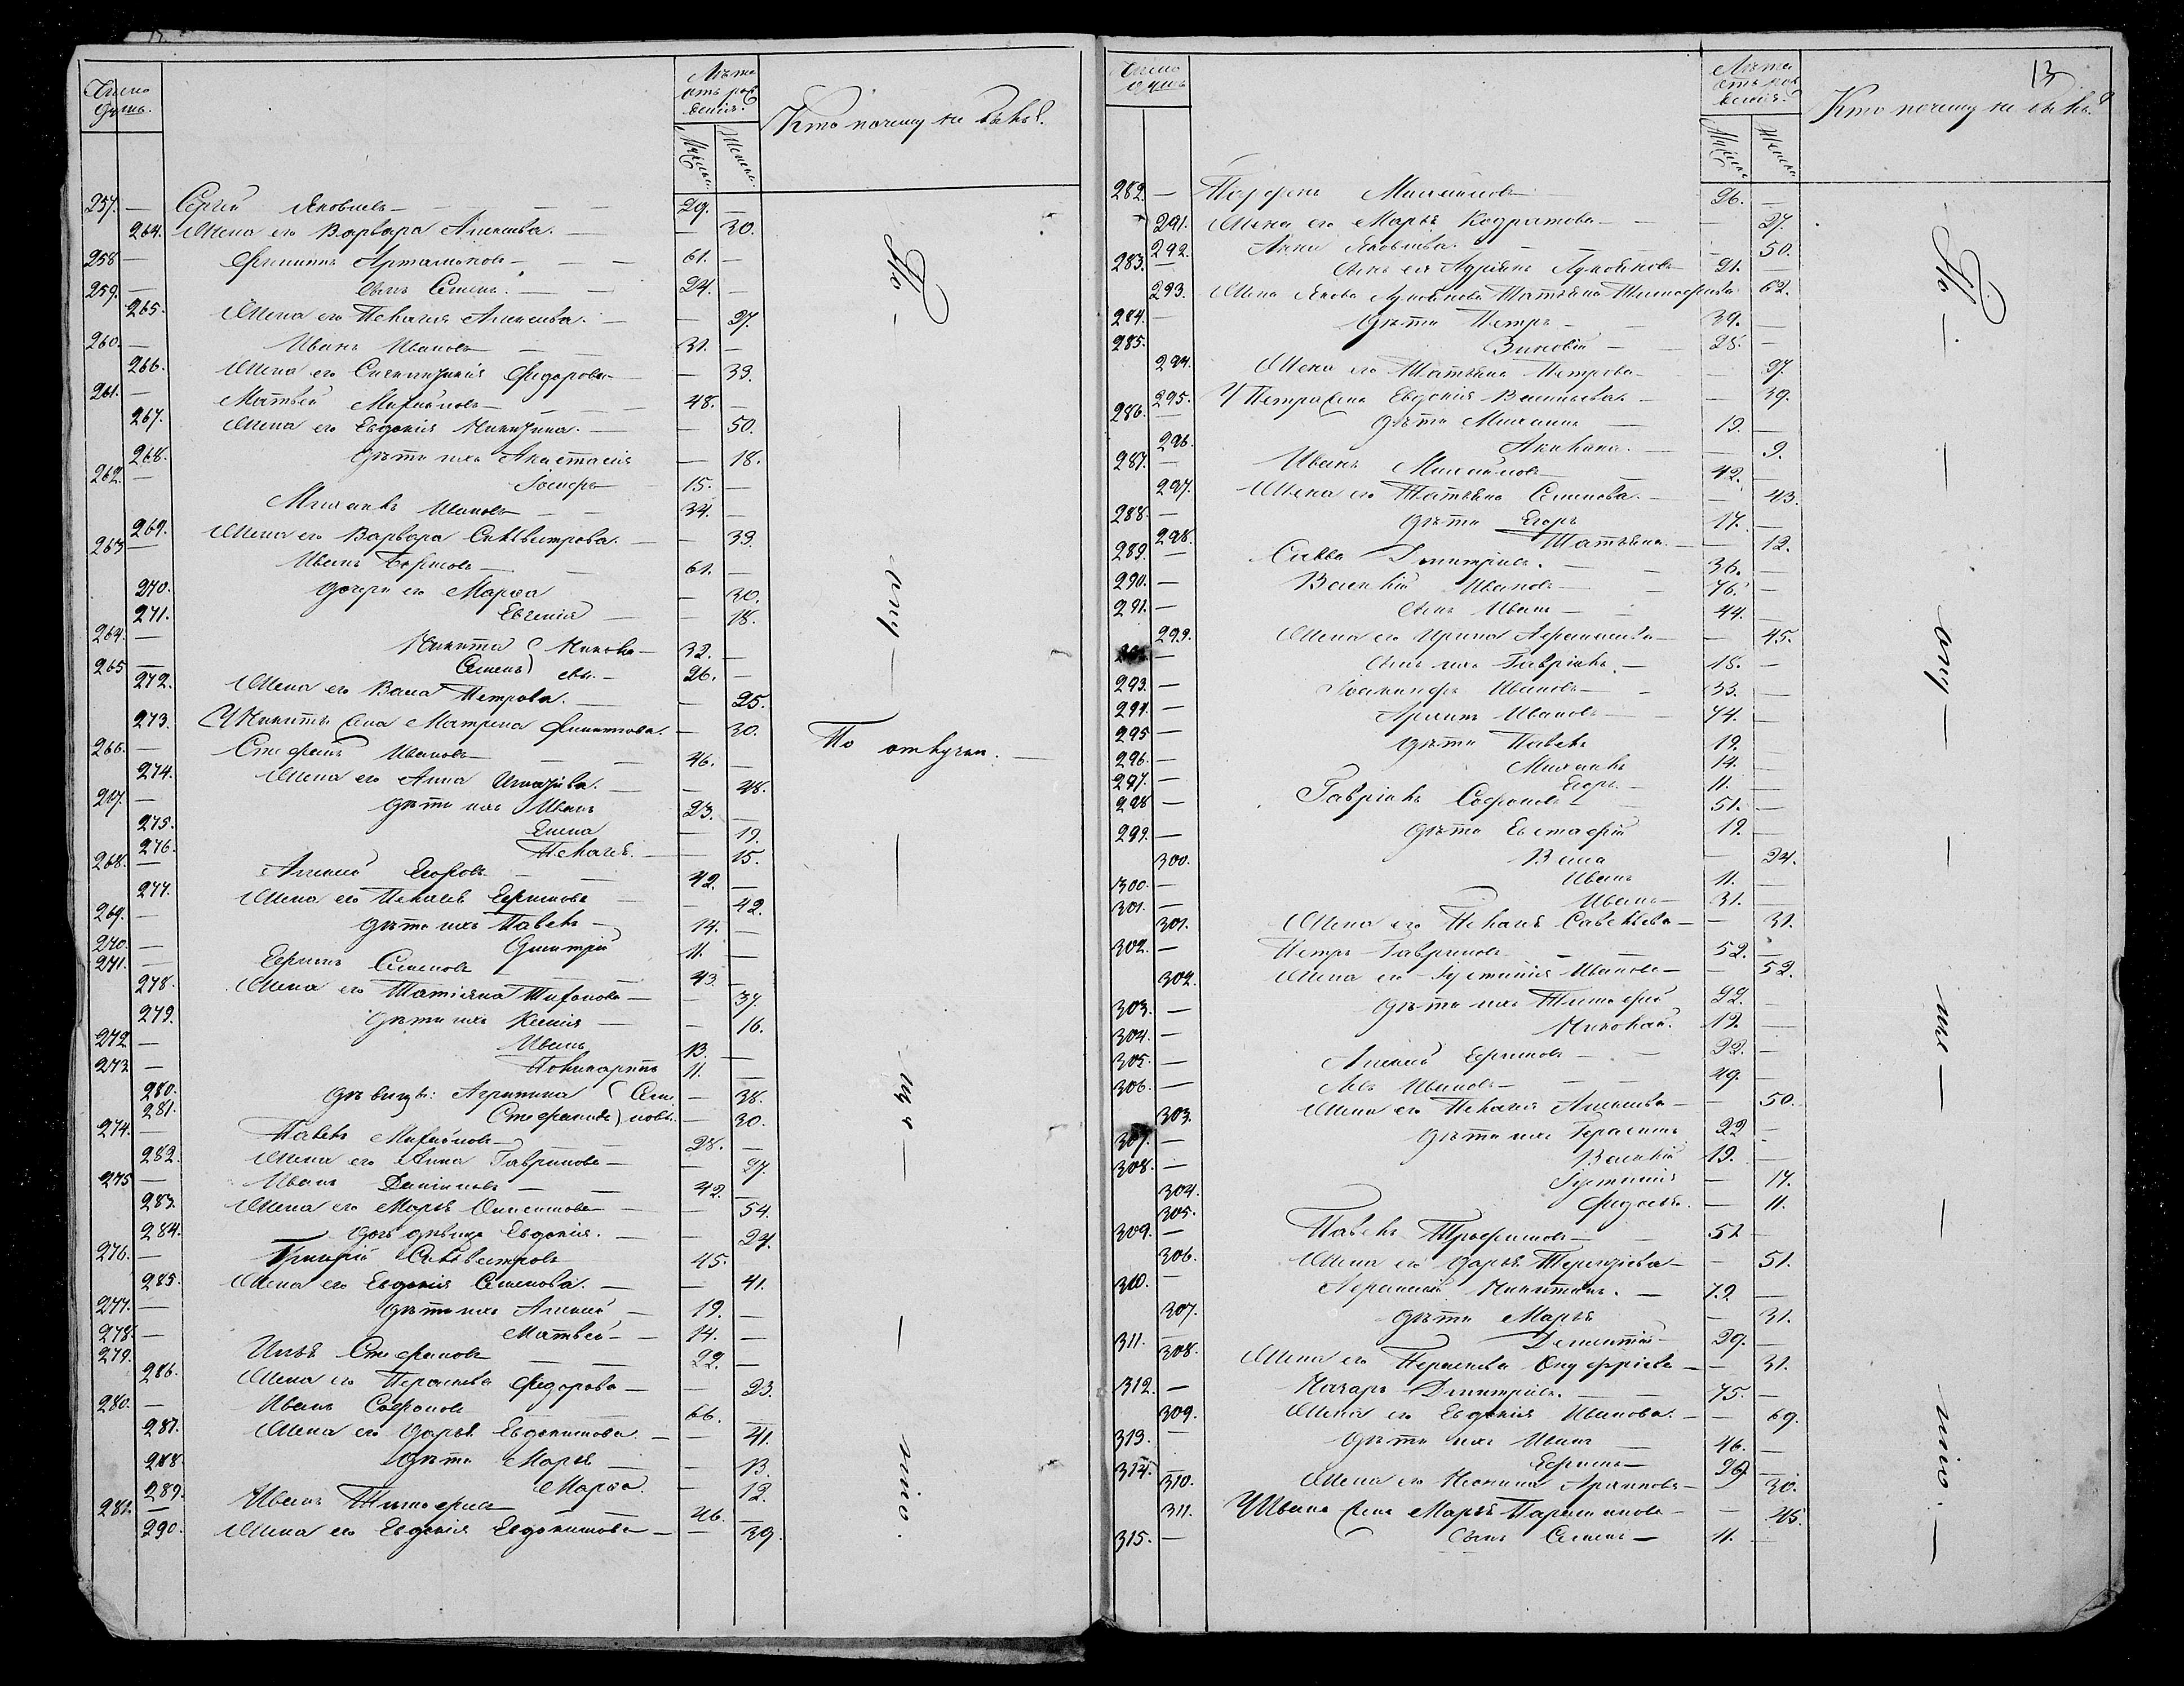 Число
душъ.
Лѣта
отъ рож
денія.
Мужеск.
Женск.
Кто почему не былъ.
257. — Сергей Яковлевъ — 29. —
264. Жена его Варвара Алексѣева. — 30.
258 — Филиппъ Артамоновъ — 61. —
259. — Сынъ Семенъ. — 24. —
265. Жена его Пелагея Алексѣева. — 27.
260. — Иванъ Ивановъ — 31. —
266. Жена его Федорова — 33.
261. — Матвей Михайловъ — 48. —
267. Жена его Евдокія Никитина. — 50.
268. Дѣти ихъ Анастасія — 18.
262. — Іосифъ — 15. —
Михаилъ Ивановъ — 34. —
269. Жена его Варвара Сильвестрова. — 33.
263 — Иванъ Борисовъ — 61. —
270. Дочери его Марѳа — 30.
271. Евгенія — 18.
264. — Никита 32. —
265 — Семенъ евы. — 26. —
272. Жена его Васса Петрова. — 25.
273. У Никиты жена Матрена Филиппова. — 30.
266. — Стефанъ Ивановъ — 46. —
274. Жена его Анна Игнатьева. — 48.
267. — Дѣти ихъ Иванъ 23. —
275. Елена — 19.
276. Пелагея. — 15.
268. — Алексей Егоровъ — 42. —
277. Жена его Пелагея Ефимова — 42.
269. — Дѣти ихъ Павелъ — 14. —
270. — Дмитрій 11. —
271. — Ефимъ Семеновъ 43. —
278. Жена его Татіяна Тихонова — 37.
279. Дѣти ихъ Ксенія — 16.
272 — Иванъ 13. —
273 — Поликарпъ 11. —
280. Дѣвицы: Агрипина (Семе — 38.
281. Стефанида) новы. — 30.
274. — Павелъ Михайловъ — 28. —
282. Жена его Анна Гаврилова — 27.
275 — Иванъ Даниловъ — 42. —
283. Жена его Марья — 54.
284. Дочь дѣвица Евдокія. — 24.
276. — Григорій Сильвестровъ 45. —
285. Жена его Евдокія Семенова. — 41.
277. — Дѣти ихъ Алексей — 19. —
278. — Матвей — 14. —
279. Илья Стефановъ — 22. —
286. Жена его Парасковья Федорова — 23.
280. — Иванъ Софроновъ 66. —
287. Жена его Дарья Евдокимова. — 41.
288. Дѣти Марья — 13.
289. Марѳа. — 12.
281. — Иванъ Тимофеевъ 46. —
290. Жена его Евдокія Евдокимова — 39.
По — — ему — — — ще — — нію.
По отлучки. —
13
Число
душъ
Лѣта
отъ рож
денія.
Мужеск.
Женск.
Кто почему не былъ.
282. — Парфенъ Михайловъ 26. —
291. Жена его Марья Кодратова — 27.
292. Анна Яковлева. — 50.
283. — Сынъ ея Адріянъ Лукояновъ 21. —
293. Жена Якова Лукоянова Татьяна Тимофеева 62.
284. — Дѣти Петръ — 39. —
285. Зиновій — 28. —
294. Жена его Татьяна Петрова — 27.
295. У Петра жена Евдокія Васильева. — 39.
286. — Дѣти Михаилъ — 19. —
296. Акилина. — 9.
287. — Иванъ Михайловъ 42. —
297. Жена его Татьяна Семенова. — 43.
288. — Дѣти Егоръ 17. —
298. Татьяна. — 12.
289. — Савва Дмитріевъ. 36. —
290. — Василій Ивановъ — 76. —
291. — Сынъ Иванъ — 44. —
299. Жена его Ирина Афанасьева — 45.
— Сынъ ихъ Гавріилъ. — 18. —
293. — Ивановъ — 33. —
294. — Архипъ Ивановъ — 74. —
295 — Дѣти Павелъ 19. —
296. — Михаилъ 14. —
297. — Егоръ — 11. —
298 — Гавріилъ Софроновъ 51. —
299. — Дѣти Евстафій 19. —
300. Васса — 24.
300. — Иванъ 11. —
301. — Иванъ — 31. —
301. Жена его Пелагея Савельева — 31.
302. — Петръ Гавриловъ — 52. —
302. Жена его Густинія Иванова — 52.
303. — Дѣти ихъ Тимофей 22. —
304. — Николай. 19. —
305. — Алексей Ефимовъ — 22. —
306. — Левъ Ивановъ — 49. —
303. Жена его Пелагея Алексѣева — 50.
307. — Дѣти ихъ Герасимъ 22 —
308. — Василій 19. —
304. Густинія — 14.
305. Федосья. — 11.
309. — Павелъ Трофимовъ — 51 —
306. Жена его Дарья Терентьева — 51.
310. — Афанасій Никитинъ. — 72 —
307. Дѣти Марья — 31.
311. — Дементій — 29. —
308. Жена его Парасковья Онуфріева — 31.
312. — Назаръ Дмитріевъ. — 75. —
309. Жена его Евдокія Иванова. — 69.
313. — Дѣти ихъ Иванъ — 46. —
314. — Ефимъ — 29. —
310. Жена его — 30.
311. У Ивана жена Марья — 45.
315. — Сынъ Семенъ — 11. —
По — — ему — — же — — нію. —